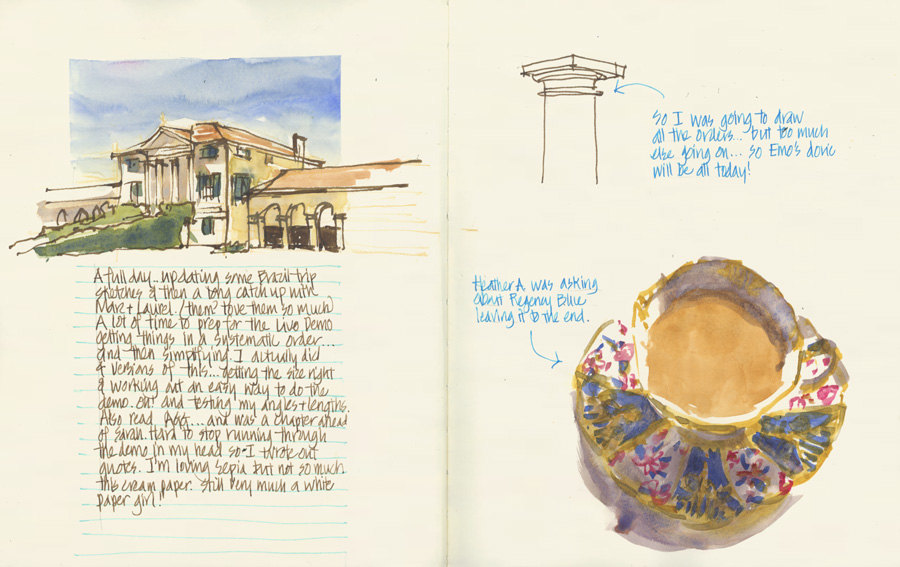 A full day.. updating some Brazil trip
sketches & then a long catch up with
Marc + Laurel (them? love them so much)
A lot of time to prep for the Live Demo
getting things in a systematic order...
and then simplifying. I actually did
versions of this... getting the size right
& working out an easy way to do the
demo. and testing my angles + lengths.
Also read and was a chapter ahead
of Sarah. Hard to stop running through
the demo in my head so I wrote out
quotes. I'm loving sepia but not so much
this cream paper. Still very much a white
paper girl!
So I was going to draw
all the orders... but too much
else going on... so Emo's doric
will be all today!
Heather A. was asking
about Regency Blue
leaving it to the end.